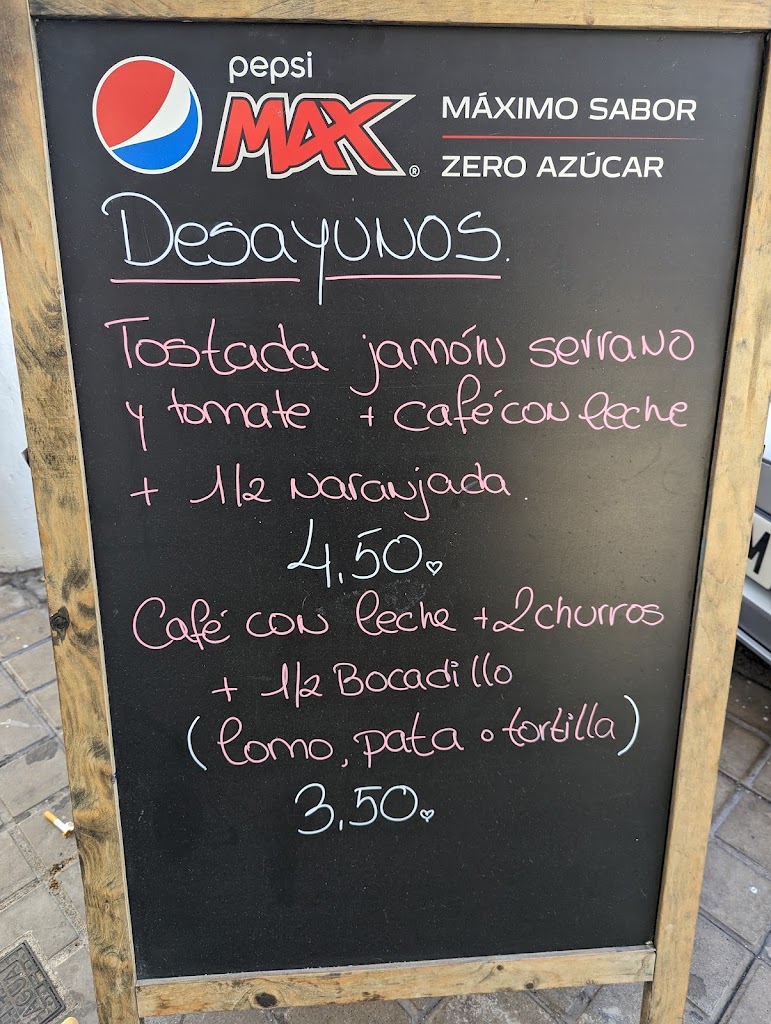 pepsi
MAX®
MÁXIMO SABOR
ZERO AZÚCAR
Desayunos.
Tostada jamón serrano
y tomate + café con leche
+ 1/2 Naranjada.
4,50
Café con leche + 2 churros
+ 1/2 Bocadillo
(lomo, pata o tortilla)
3,50
M
AGUA